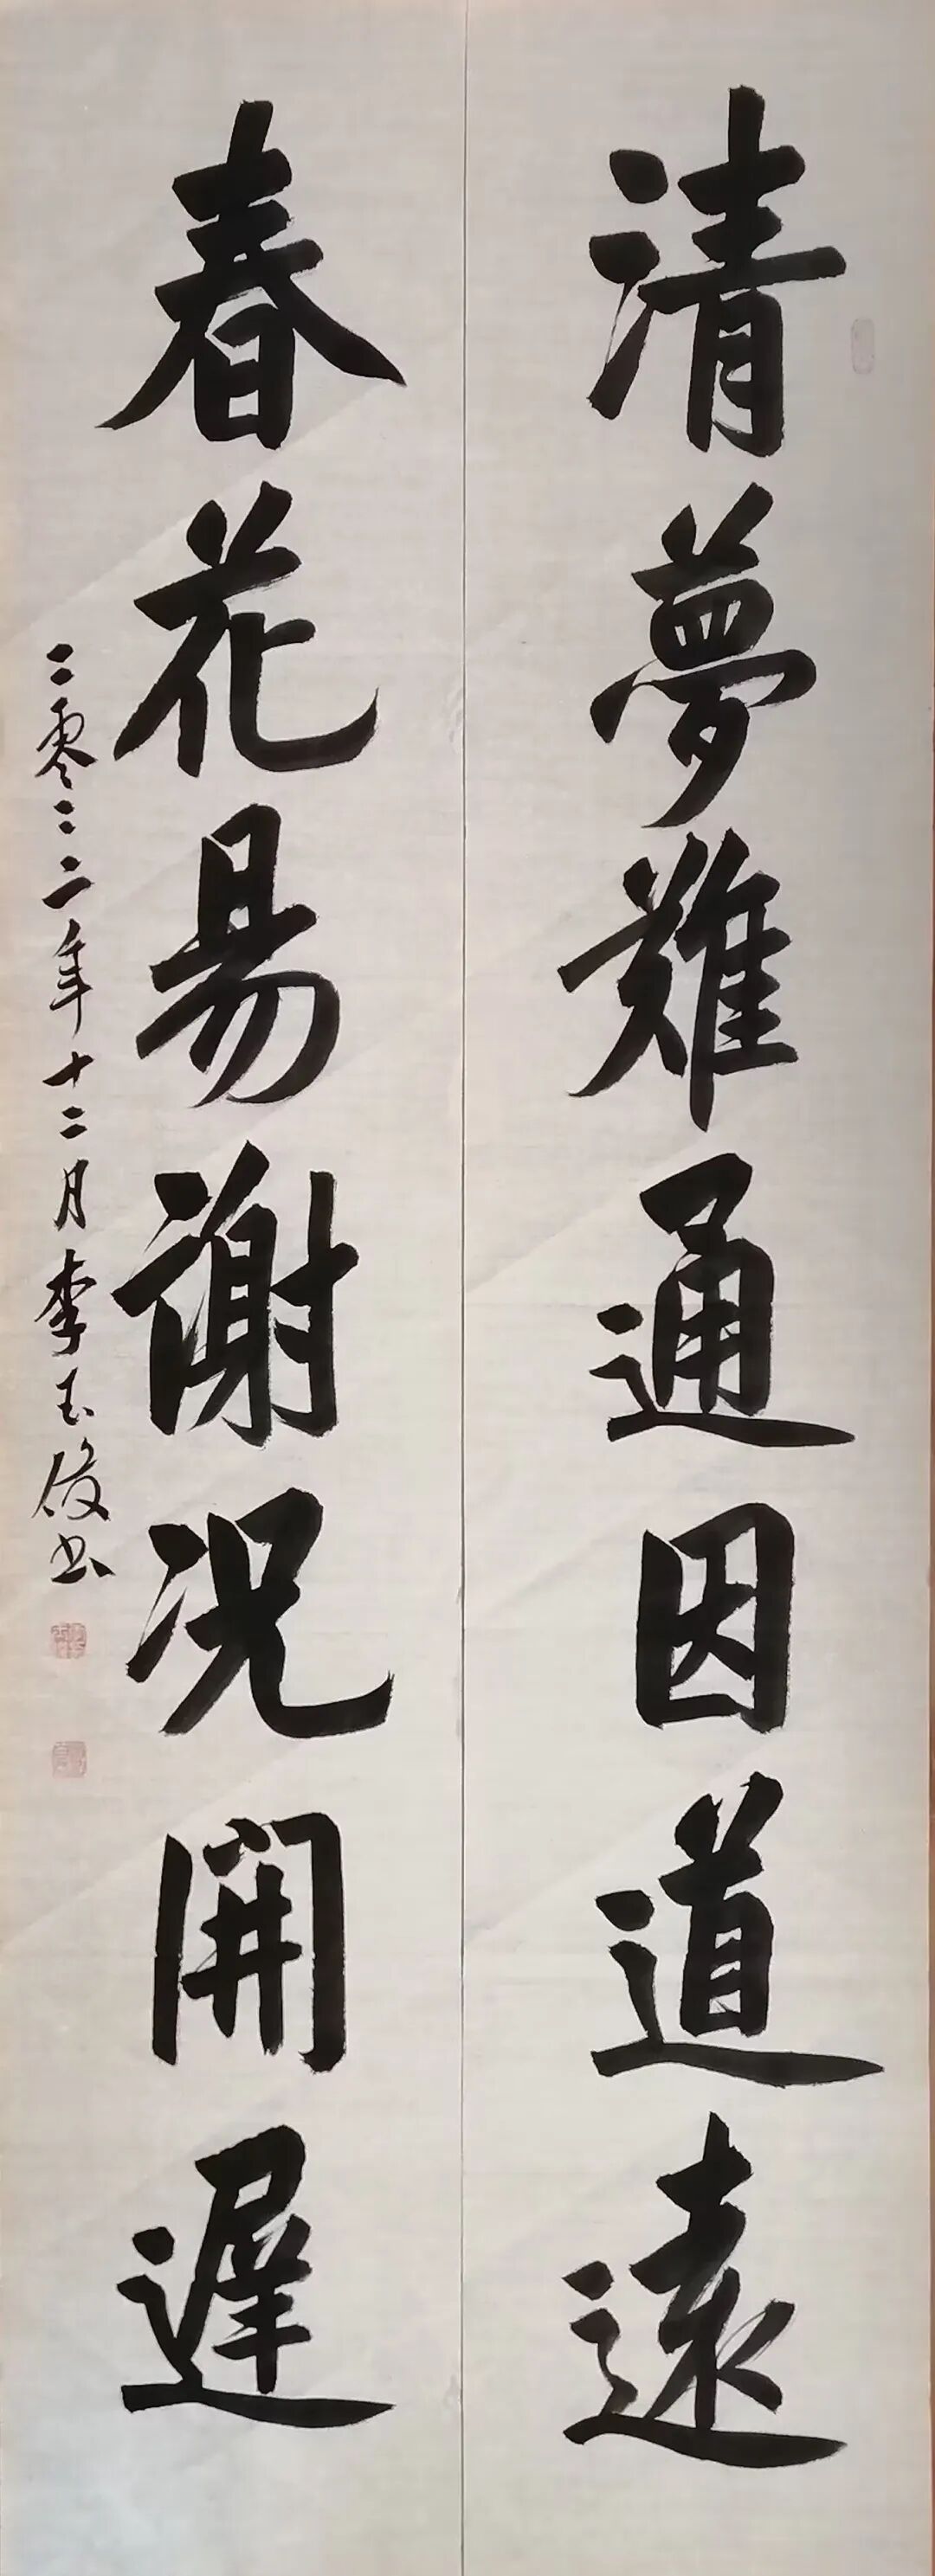 清夢難通因道遠
春花易謝況開遲
二零二二年十二月李玉俊书